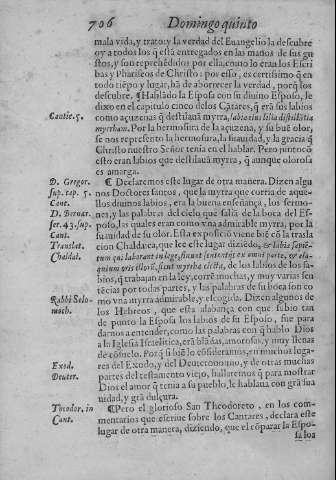 706 Domingo quinto
mala vida, y trato: y la verdad del Euangelio la descubre
oy a todos los q̃ està entregados en las manos de sus gu
stos, y son reprehẽdidos por ella, como lo eran los Escri
bas y Phariseos de Christo: por esso, es certissimo q̃ en
todo tiẽpo y lugar, hã de aborrecer la verdad, porq̃ los
descubre. ¶ Hablãdo la Esposa con su diuino Esposo, le
Cantic. 5. dixo en el capitulo cinco de los Cãtares, q̃ erã sus labios
como açuzenas q̃ destilauã myrra, labia eius lilia distillãtia
myrrham. Por la hermosura de la açuzena, y su buẽ olor,
se nos representa la hermosura, la suauidad, y la gracia q̃
Christo nuestro Señor tenia en el hablar. Pero jutamẽte cõ
esto eran labios que destilauã myrra, q̃ aunque olorosa
es amarga.
D. Gregor. ¶ Declaremos este lugar de otra manera. Dizen algu
sup. cap. 5. nos Doctores santos, que la myrra que corria de aque-
Cant. llos diuinos labios, era la buena enseñança, los sermo-
D. Bernar. nes, y las palabras del cielo que salia de la boca del Es-
ser. 43. sup. poso, las quales eran como vna admirable myrra, por la
Cant. suauidad de su olor. Esta exposiciõ viene biẽ cõ la trasla
Translat. cion Chaldaica, que lee este lugar diziẽdo, & labia sapiẽ-
Chaldai. tum qui laborant in lege, fluunt sententijs ex omni parte, & elo
quium oris illius, sicut myrrha electa, de los labios de los sa-
bios, q̃ trabajan en la ley, corrẽ muchas, y muy varias sen
tẽcias por todas partes, y las palabras de su boca son co
Rabbi Salo- mo vna myrra admirable, y escogida. Dizen algunos de
moth. los Hebreos, que esta alabança con que subio tan
de punto la Esposa los labios de su Esposo, fue para
darnos a entender, como las palabras con q̃ hablò Dios
a la Iglesia Israelitica, erã blãdas, amorosas, y muy llenas
de cõsuelo. Porq̃ si biẽ lo cõsideramos, en muchos luga-
Exod. res del Exodo, y del Deuteronomio, y de otras muchas
Deuter. partes del testamento viejo, hallaremos q̃ para mostrar
Dios el amor q̃ tenia a su pueblo, le hablaua con grã sua
uidad, y grã dulçura.
Theodor. in ¶ Pero el glorioso San Theodoreto, en los com-
Cant. mentarios que escriue sobre los Cantares, declara este
lugar de otra manera, diziendo, que el cõparar la Espo-
sa los